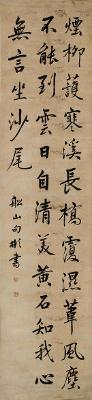 煙柳護寒溪長橋覆濕葦風塵
不能到雲日自清美黃石知我心
無言坐沙尾
船山 彬書